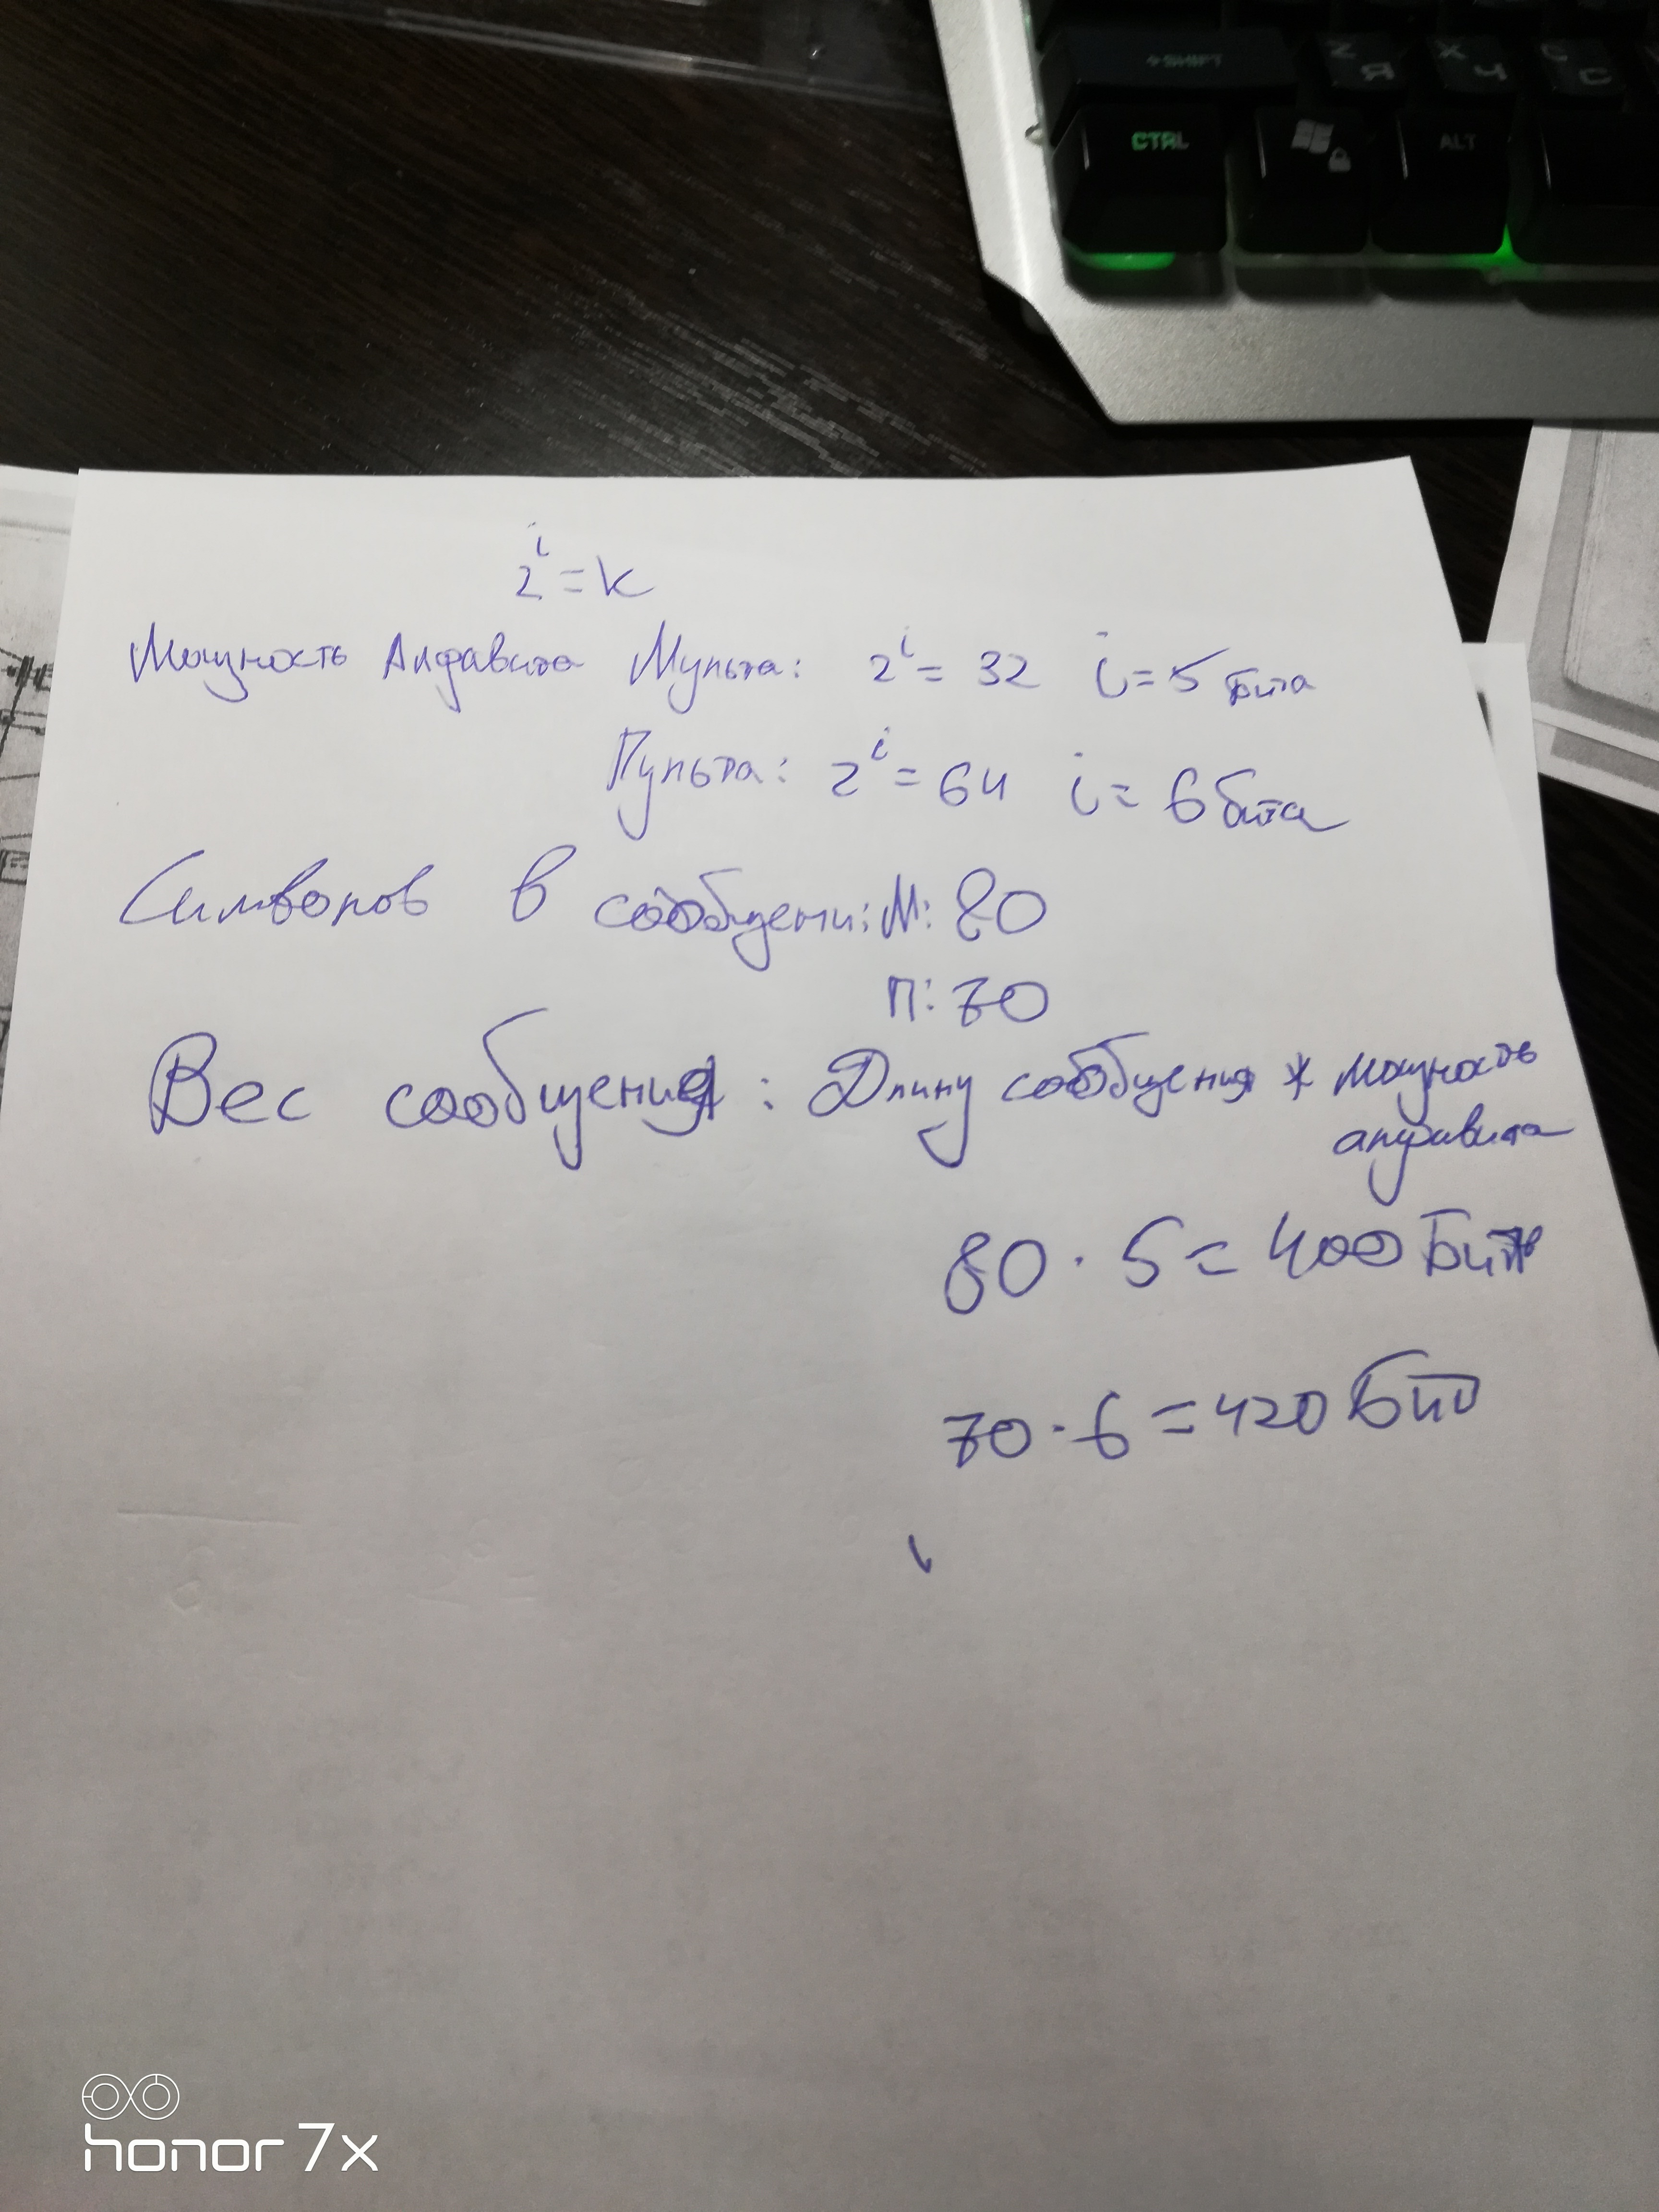 SHIFT
Z Я
X Ч
C С
CTRL
ALT
2^i = k
Мощность Алфавита Мульта: 2^i = 32 i = 5 бита
Пульта: 2^i = 64 i = 6 бита
Символов в сообщени: М: 80
П: 70
Вес сообщения: Длину сообщения * мощность
алфавита
80 · 5 = 400 Бит
70 · 6 = 420 Бит
honor 7x